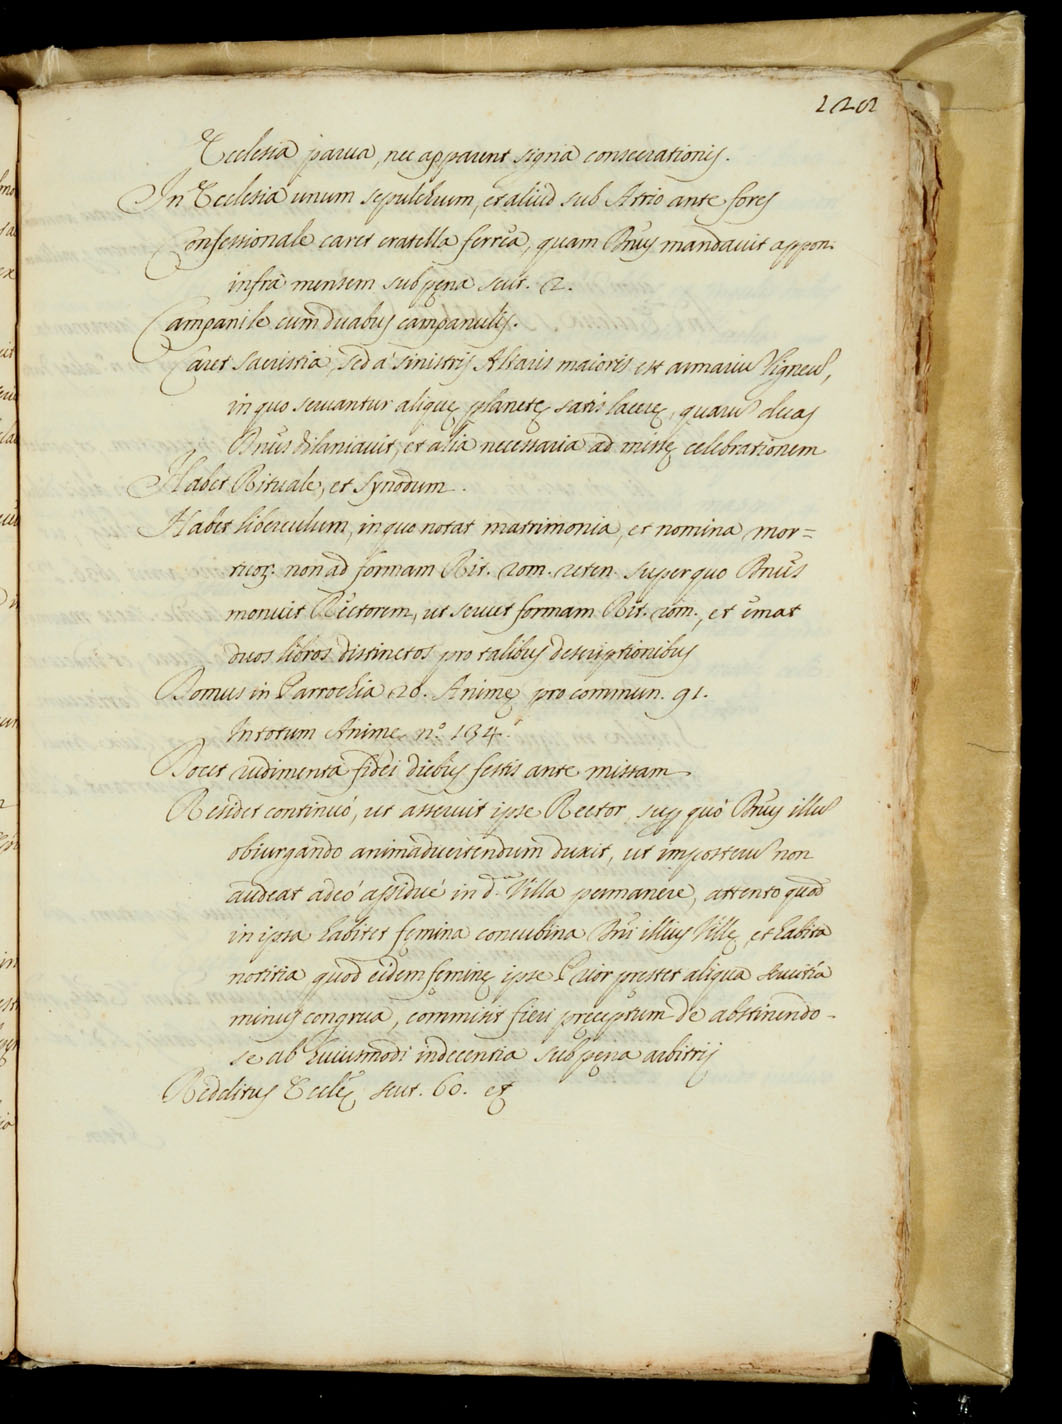 122
Ecclesia parua, nec apparent signa consecrationis.
In Ecclesia unum sepulchrum, et aliud sub Atrio ante fores
Confessionale caret cratella ferrea, quam Dnus mandauit appon.
infra mensem sub pena scut. 2.
Campanile cum duabus campanulis.
Caret sacristia, sed à sinistris Altaris maioris est armariu ligneu,
in quo seruantur aliquę planetę satis lacerę, quaru duas
Dnus dilaniauit, et alia necessaria ad missę celebrationem
Habet Rituale, et Synodum.
Habet liberculum, in quo notat matrimonia, et nomina mor=
tuoꝝ. non ad formam Rit. rom. super quo Dnus
monuit Rectorem, ut seruet formam Rit. rom., et emat
duos libros distinctos pro talibus descriptionibus
Domus in Parrochia 20. Animę pro commun. 91.
In totum Animę nº. 134.
Docet rudimenta fidei diebus festis ante missam
Residet continuò, ut asseruit ipse Rector, sup quo Dnus illu
obiurgando animaduertendum duxit, ut imposteru non
audeat adeò assiduè in d. Villa permanere, attento quod
in ipsa habitet femina concubina Dni illius Villę, et habita
notitia quod eidem feminę ipse Prior prestet aliqua seruitia
minus congrua, commisit fieri pręceptum de abstinendo-
se ab huiusmodi indecentia sub pena arbitrij
Redditus Ecclę scut. 60. et